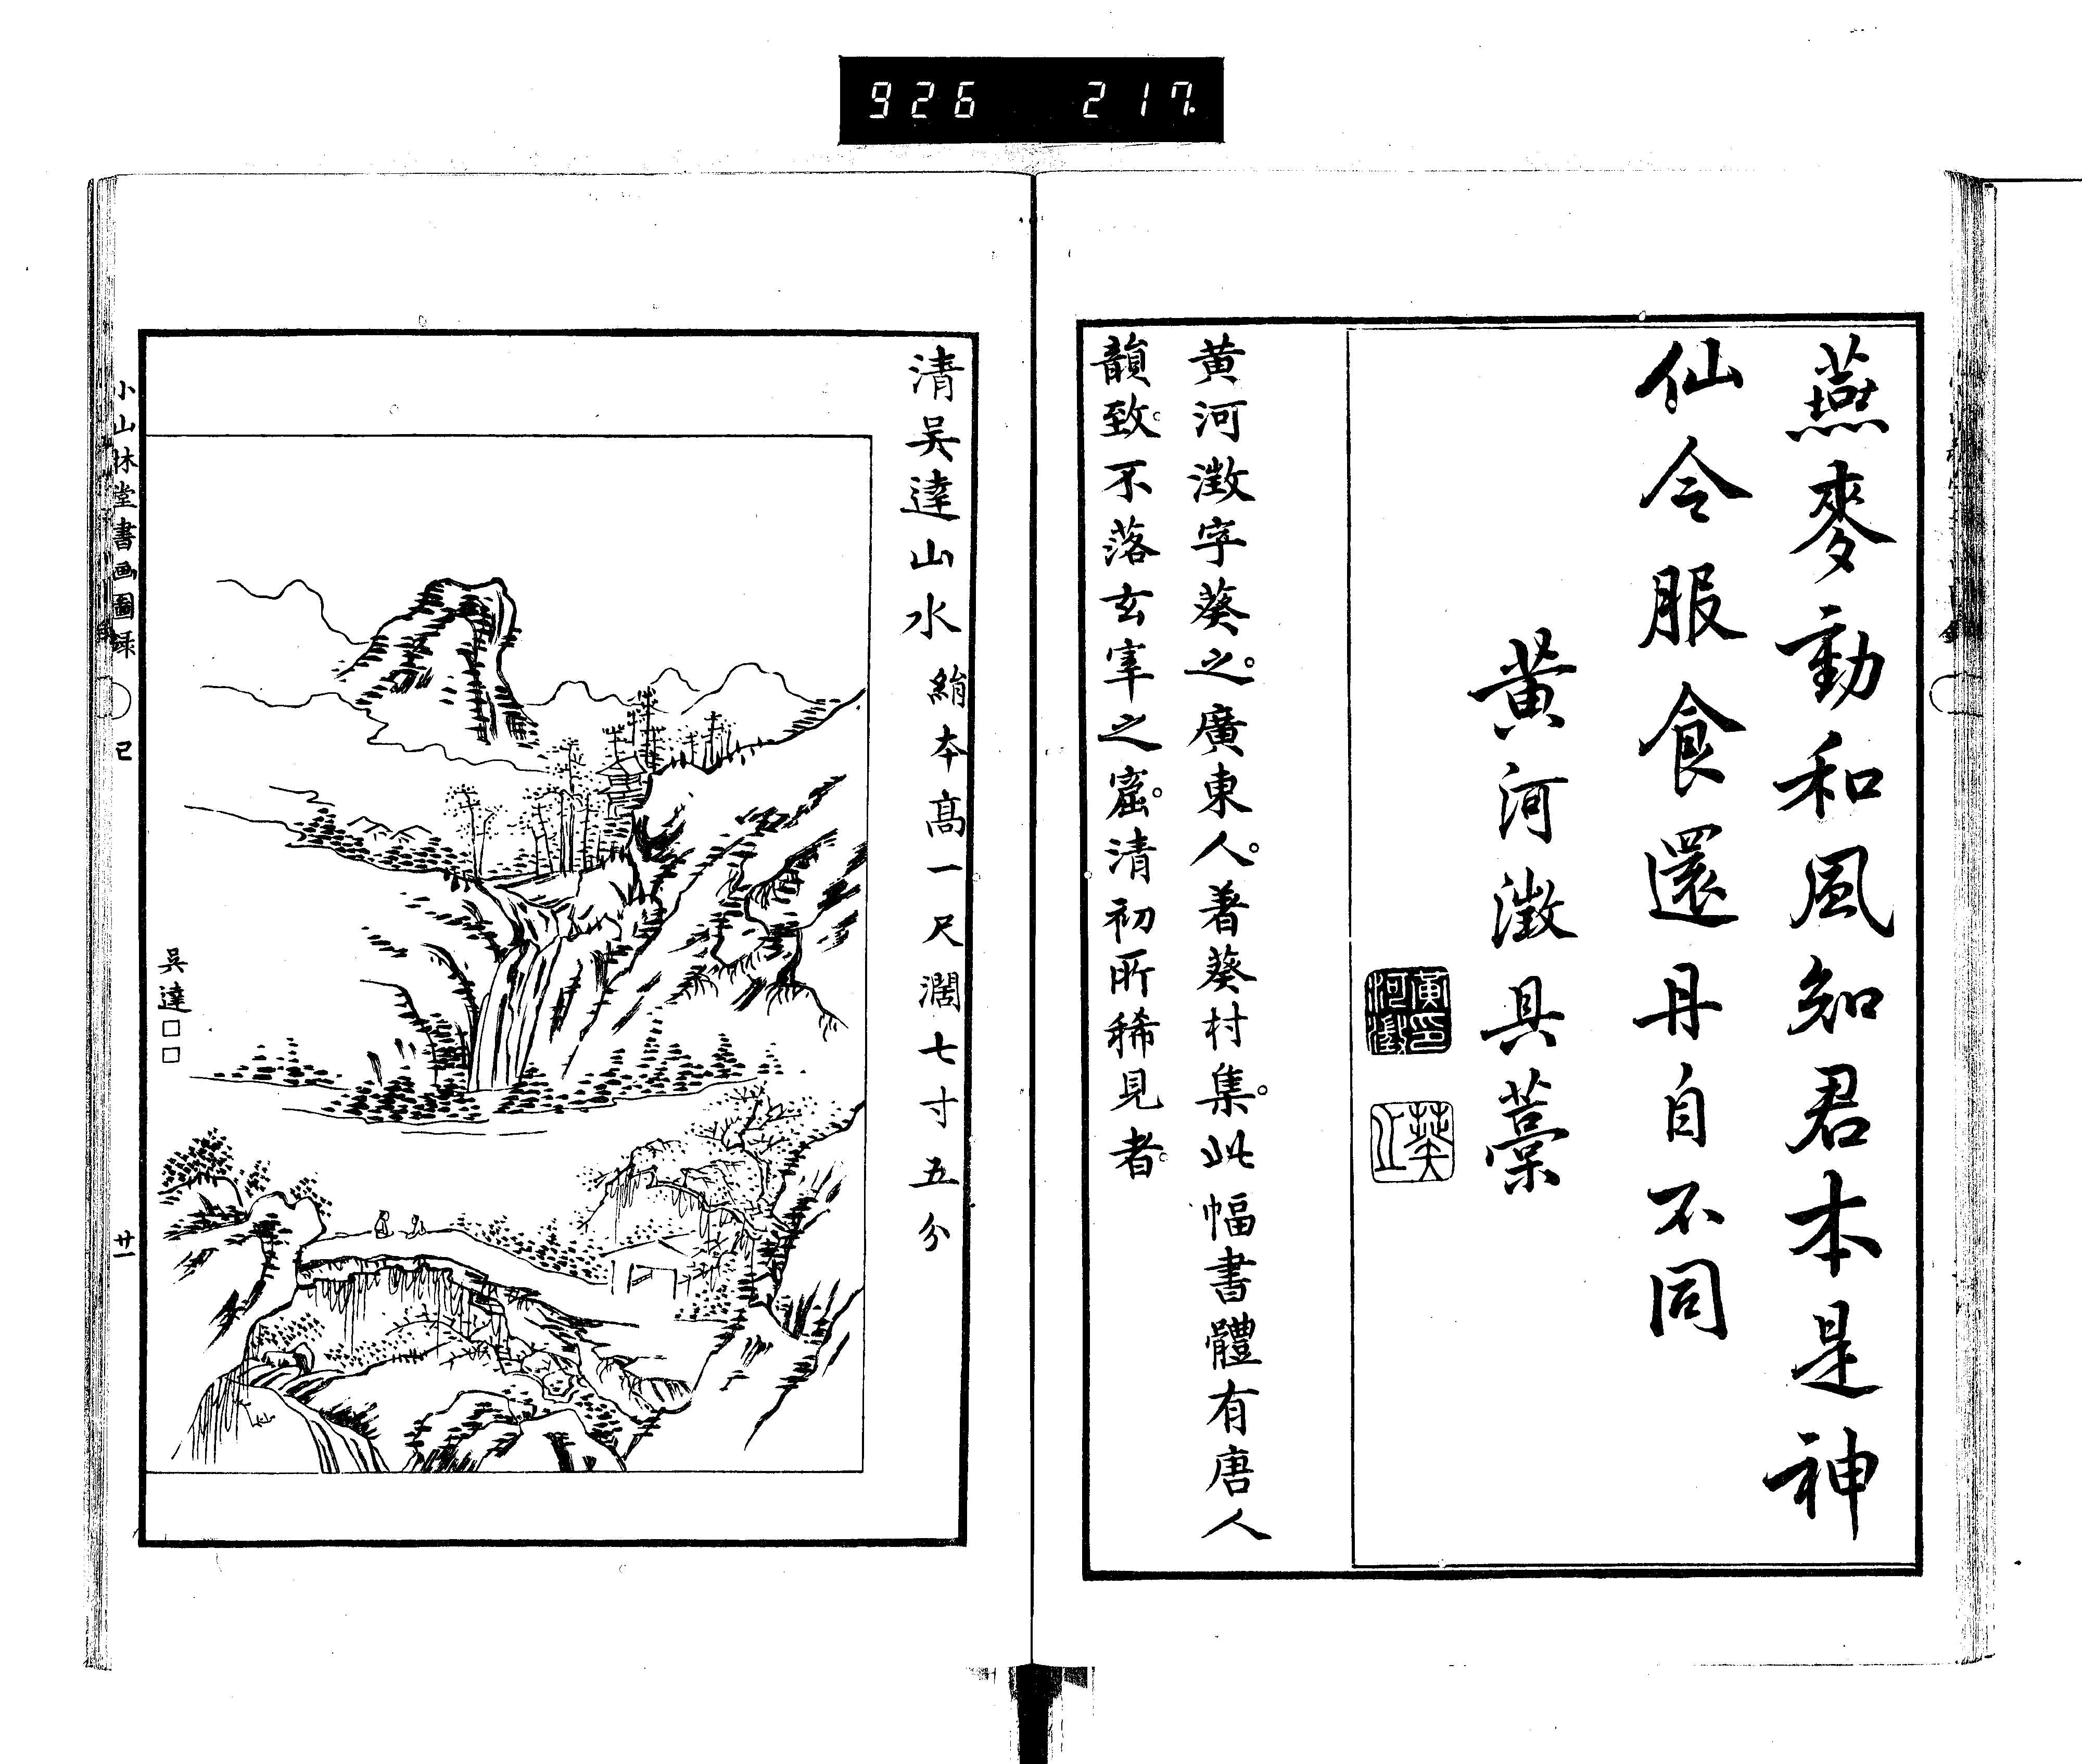 926 217
燕麥動和風知君本是神
仙令服食還丹自不同
黃河澂具藁
黃河澂字葵之。廣東人。著葵村集。此幅書體有唐人
韻致。不落玄宰之窟。清初所稀見者。
清吳達山水 絹本高一尺濶七寸五分
吳達□□
小山林堂書画圖録 己 廿一